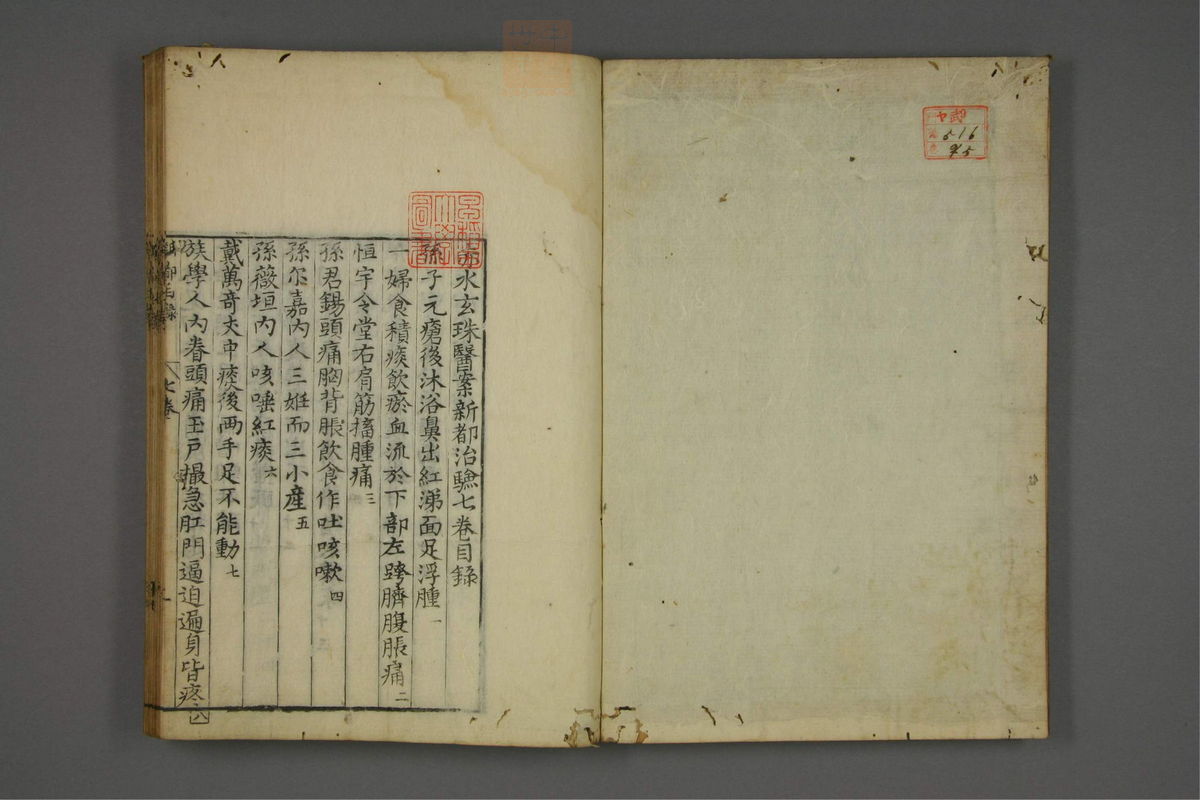 赤水玄珠醫案新都治驗七卷目錄
孫子元瘡後沐浴鼻出紅涕面足浮腫一
一婦食積痰飲瘀血流於下部左跨臍腹脹痛二
恒宇令堂右肩筋搐腫痛三
孫君錫頭痛胸背脹飲食作吐咳嗽四
孫尒嘉內人三姙而三小產五
孫薇垣內人咳唾紅痰六
戴萬奇丈中痰後两手足不能動七
族學人內眷頭痛玉戶撮急肛門逼迫遍身皆疼八
七卷
516